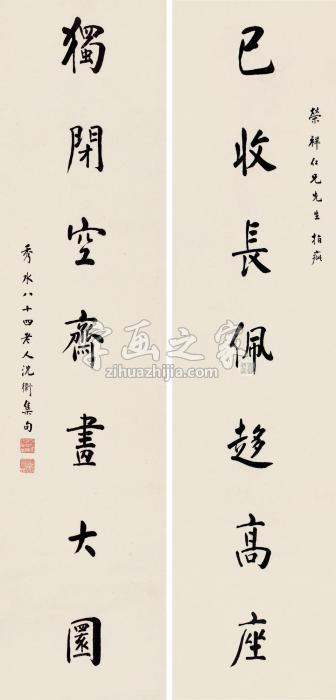 榮祥仁兄先生指疵
已收長佩趍高座
獨閉空齋畫大圜
秀水八十四老人沈衛集句
字画之家
zihuazhijia.com